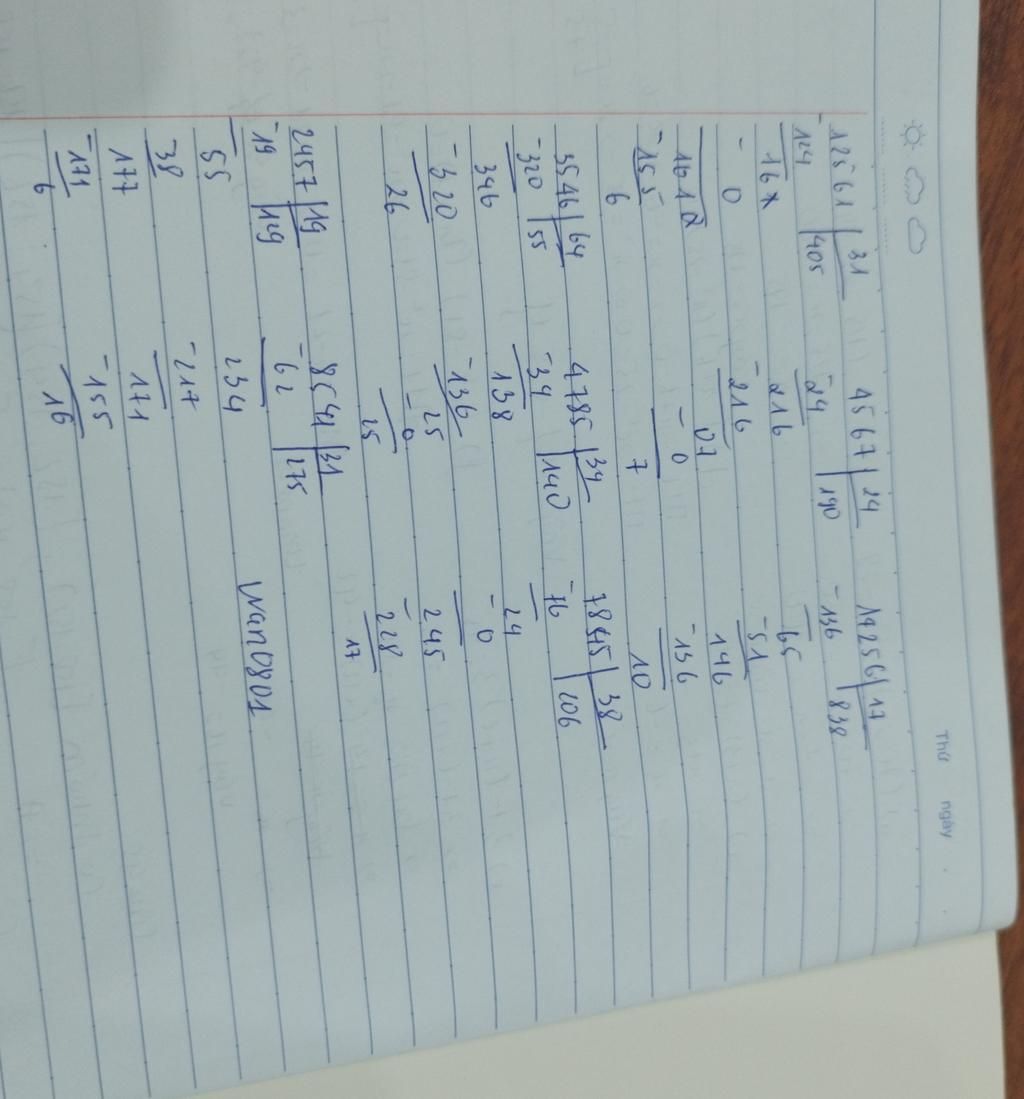 Thứ ngày
12561 31 4567 24 14256 17
- 124 405 - 24 190 - 136 838
16 216 65
- 0 - 216 - 51
161 07 146
- 155 - 0 - 136
6 7 10
3546 64 4785 34 7845 38
- 320 55 - 34 140 - 76 206
346 138 24
- 320 - 136 - 0
26 25 245
- 0 - 228
25 17
2457 19 8544 31
- 19 129 - 62 275
55 234 Wan0801
- 38 - 217
177 171
- 171 - 155
6 16